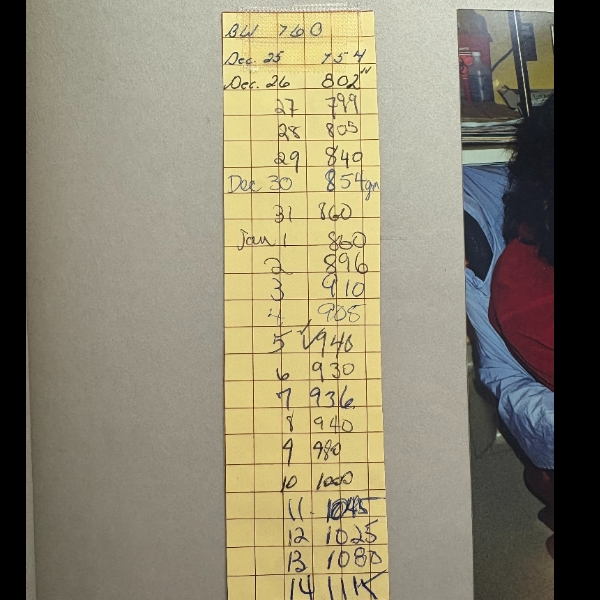 BW 760
Dec. 25 754
Dec. 26 802"
27 799
28 805
29 840
Dec 30 854gm
31 860
Jan 1 860
2 896
3 910
4 905
5 ✓940
6 930
7 936
8 940
9 980
10 1000
11. 1045
12 1025
13 1080
14 1115